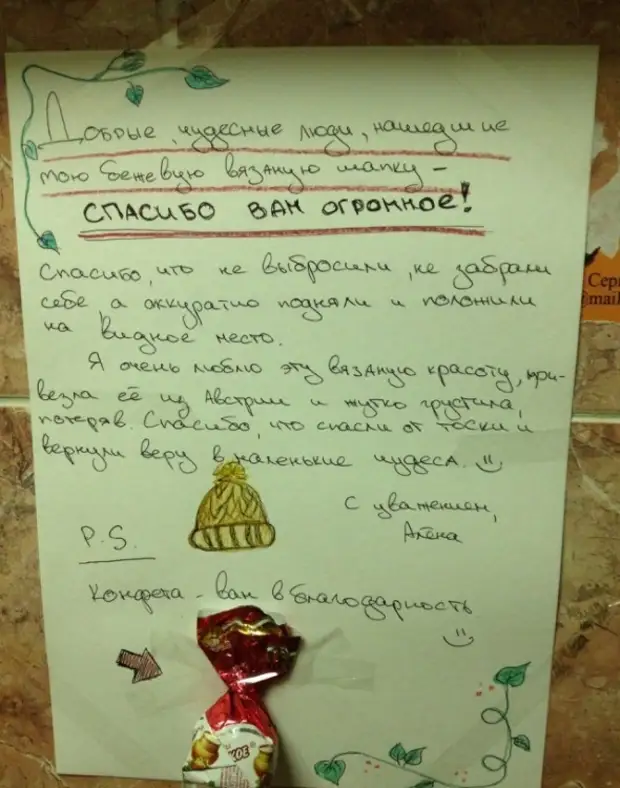 Добрые, чудесные люди, нашедшие
мою бежевую вязаную шапку –
СПАСИБО ВАМ ОГРОМНОЕ!
Спасибо, что не выбросили, не забрали
себе а аккуратно подняли и положили
на видное место.
Я очень люблю эту вязаную красоту, при-
везла её из Австрии и жутко грустила,
потеряв. Спасибо, что спасли от тоски и
вернули веру в маленькие чудеса.
С уважением,
Алёна
P.S.
Конфета – вам в благодарность
Сер
@mail
КОЕ